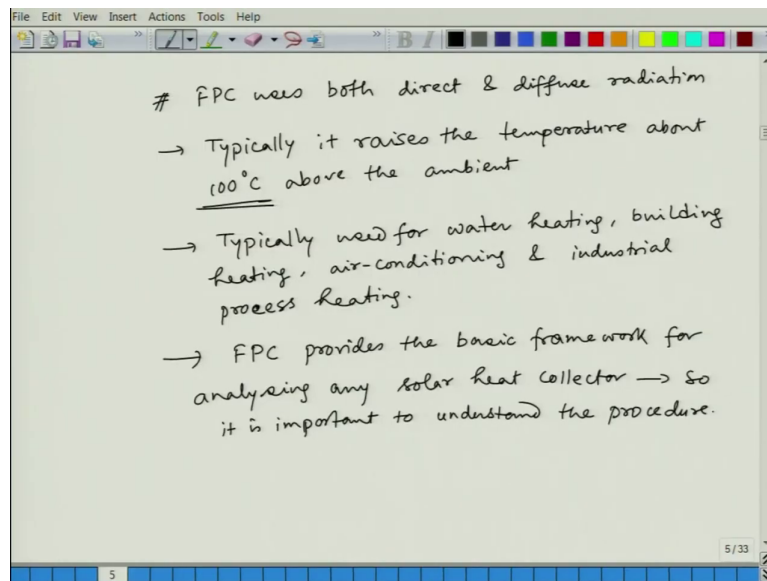 File Edit View Insert Actions Tools Help
B I
# FPC uses both direct & diffuse radiation
→ Typically it raises the temperature about
100°C above the ambient
→ Typically used for water heating, building
heating, air-conditioning & industrial
process heating.
→ FPC provides the basic framework for
analysing any solar heat collector → so
it is important to understand the procedure.
5/33
5